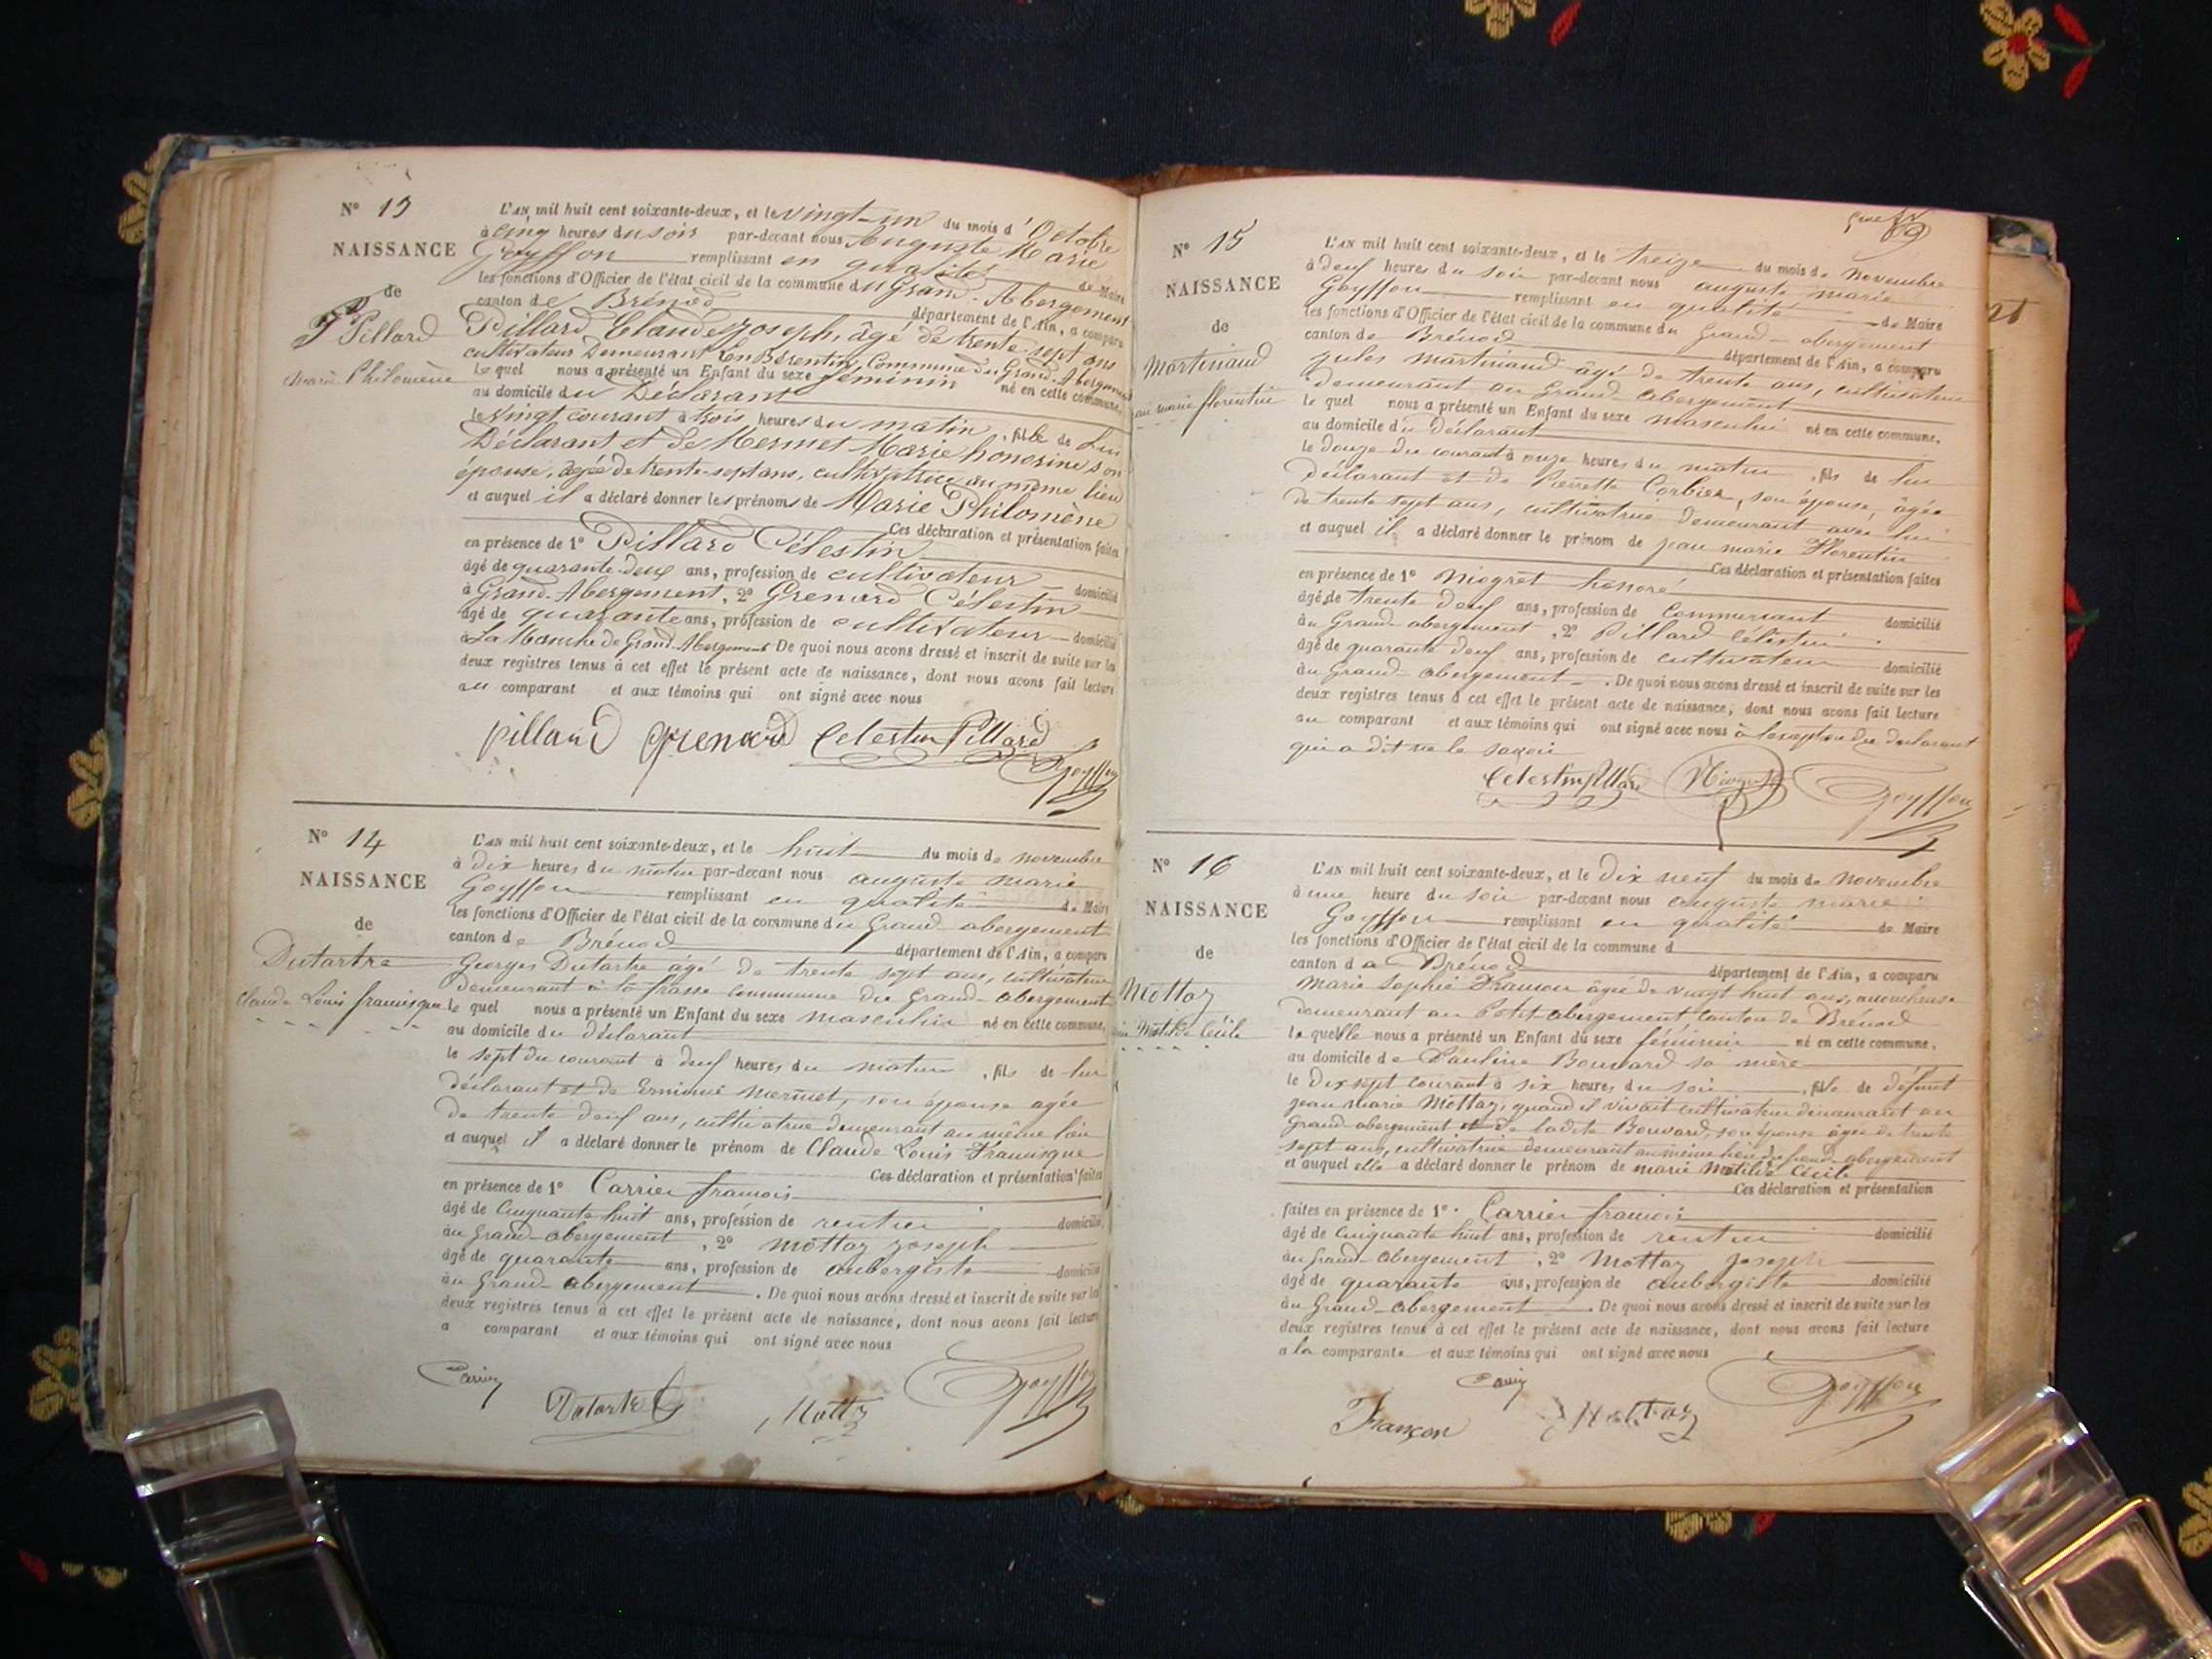 N° 13
NAISSANCE
de
Pillard
Marie Philomène
L'AN mil huit cent soixante-deux, et le vingt-un du mois d'Octobre
à cinq heures du soir par-devant nous Auguste Marie
Goyffon remplissant en qualité de Maire
les fonctions d'Officier de l'état civil de la commune du Grand-Abergement
canton de Brénod département de l'Ain, a comparu
Pillard Claude Joseph, âgé de trente-sept ans
cultivateur Demeurant en Bérentin Commune du Grand-Abergement
lequel nous a présenté un Enfant du sexe féminin né en cette commune,
au domicile du Déclarant
le vingt courant à trois heures du matin, fille de Lui
Déclarant et de Mermet Marie honorine son
épouse, âgée de trente-sept ans, cultivatrice au même lieu
et auquel il a déclaré donner les prénoms de Marie Philomène
Ces déclaration et présentation faites
en présence de 1° Pillard Célestin
âgé de quarante-deux ans, profession de cultivateur domicilié
à Grand-Abergement, 2° Grenard Célestin
âgé de quarante ans, profession de cultivateur domicilié
à La Manche de Grand-Abergement De quoi nous avons dressé et inscrit de suite sur les
deux registres tenus à cet effet le présent acte de naissance, dont nous avons fait lecture
au comparant et aux témoins qui ont signé avec nous
pillard grenard Celestin Pillard
Goyffon
N° 14
NAISSANCE
de
Dutartre
Claude Louis francisque
L'AN mil huit cent soixante-deux, et le huit du mois de novembre
à dix heures du matin par-devant nous auguste marie
Goyffon remplissant en qualité de Maire
les fonctions d'Officier de l'état civil de la commune du Grand abergement
canton de Brénod département de l'Ain, a comparu
Georges Dutartre âgé de trente sept ans, cultivateur
demeurant à la frasse commune du Grand-abergement
le quel nous a présenté un Enfant du sexe masculin né en cette commune,
au domicile du déclarant
le sept du courant à deux heures du matin, fils de lui
déclarant et de Erminie Mermet, son épouse agée
de trente deux ans, cultivatrice demeurant au même lieu
et auquel il a déclaré donner le prénom de Claude Louis Francisque
Ces déclaration et présentation faites
en présence de 1° Carrier françois
âgé de Cinquante huit ans, profession de rentier domicilié
au Grand-abergement, 2° mottaz joseph
âgé de quarante ans, profession de aubergiste domicilié
au Grand-abergement. De quoi nous avons dressé et inscrit de suite sur les
deux registres tenus à cet effet le présent acte de naissance, dont nous avons fait lecture
a comparant et aux témoins qui ont signé avec nous
Carrier Dutartre Mottaz Goyffon
N° 15
NAISSANCE
de
Martinand
jean marie florentin
L'AN mil huit cent soixante-deux, et le treize du mois de novembre
à deux heures du soir par-devant nous auguste marie
Goyffon remplissant en qualité de Maire
les fonctions d'Officier de l'état civil de la commune du Grand-abergement
canton de Brénod département de l'Ain, a comparu
jules martinand âgé de trente ans, cultivateur
demeurant au Grand abergement
le quel nous a présenté un Enfant du sexe masculin né en cette commune,
au domicile du déclarant
le douze du courant à onze heures du matin, fils de lui
déclarant et de Pierrette Carbier, son épouse, âgée
de trente sept ans, cultivatrice demeurant avec lui
et auquel il a déclaré donner le prénom de jean marie Florentin
Ces déclaration et présentation faites
en présence de 1° Niogret honoré
âgé de trente deux ans, profession de Commerçant domicilié
au Grand-abergement, 2° Pillard Célestin
âgé de quarante deux ans, profession de cultivateur domicilié
au Grand-abergement. De quoi nous avons dressé et inscrit de suite sur les
deux registres tenus à cet effet le présent acte de naissance, dont nous avons fait lecture
au comparant et aux témoins qui ont signé avec nous à l'exception du déclarant
qui a dit ne le savoir
Celestin Pillard Niogret Goyffon
N° 16
NAISSANCE
de
Mottaz
Matilde Cécile
L'AN mil huit cent soixante-deux, et le Dix neuf du mois de Novembre
à une heure du soir par-devant nous auguste marie
Goyffon remplissant en qualité de Maire
les fonctions d'Officier de l'état civil de la commune d
canton de Brénod département de l'Ain, a comparu
Marie Sophie Françon âgée de vingt huit ans, accoucheuse
demeurant au Petit abergement canton de Brénod
la quelle nous a présenté un Enfant du sexe féminin né en cette commune,
au domicile de Pauline Bouvard sa mère
le Dix sept courant à six heures du soir, fille de défunt
jean marie Mottaz, quand il vivait cultivateur demeurant au
Grand abergement et de ladite Bouvard, son épouse âgée de trente
sept ans, cultivatrice demeurant au même lieu de Grand-abergement
et auquel elle a déclaré donner le prénom de marie Matilde Cécile
Ces déclaration et présentation
faites en présence de 1° Carrier françois
âgé de Cinquante huit ans, profession de rentier domicilié
au Grand-abergement, 2° Mottaz joseph
âgé de quarante ans, profession de aubergiste domicilié
au Grand-abergement. De quoi nous avons dressé et inscrit de suite sur les
deux registres tenus à cet effet le présent acte de naissance, dont nous avons fait lecture
a la comparante et aux témoins qui ont signé avec nous
Françon Carrier Mottaz Goyffon